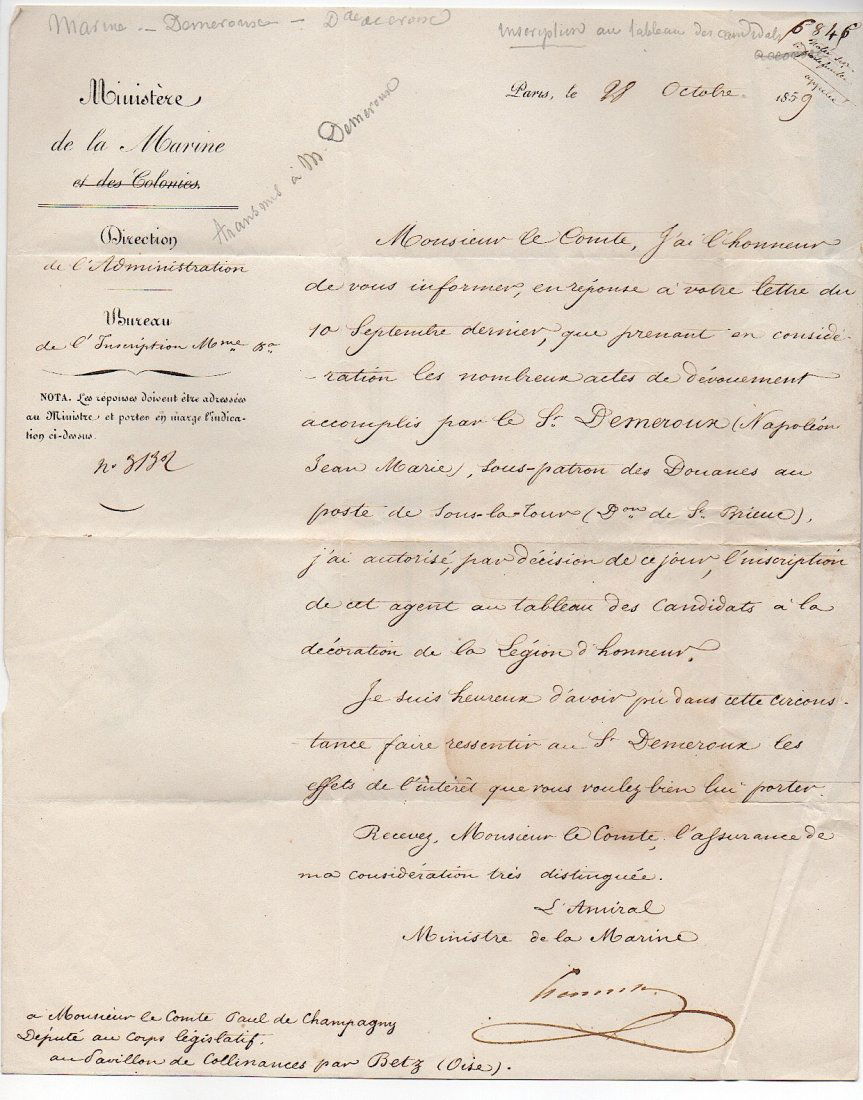 Marine – Demeroux – Dde de croix
Inscription au tableau des candidats
6846
Paris, le 28 Octobre 1859
Ministère
de la Marine
et des Colonies.
transmis à M Demeroux
Direction
de l'Administration
Bureau
de l'Inscription Mme
NOTA. Les réponses doivent être adressées
au Ministre et porter en marge l'indica-
tion ci-dessus.
no 3132
Monsieur le Comte, J'ai l'honneur
de vous informer, en réponse à votre lettre du
10 Septembre dernier, que prenant en considé-
-ration les nombreux actes de dévouement
accomplis par le Sr. Demeroux (Napoléon
Jean Marie), sous-patron des Douanes au
poste de Sous-la-Tour (Don de St. Brieuc),
j'ai autorisé, par décision de ce jour, l'inscription
de cet agent au tableau des candidats à la
décoration de la Légion d'honneur.
Je suis heureux d'avoir pû dans cette circons-
tance faire ressentir au Sr. Demeroux les
effets de l'intérêt que vous voulez bien lui porter.
Recevez, Monsieur le Comte, l'assurance de
ma considération très distinguée.
L'Amiral
Ministre de la Marine
à Monsieur le Comte Paul de Champagny
Député au Corps législatif.
au Pavillon de Collinances par Betz (Oise).